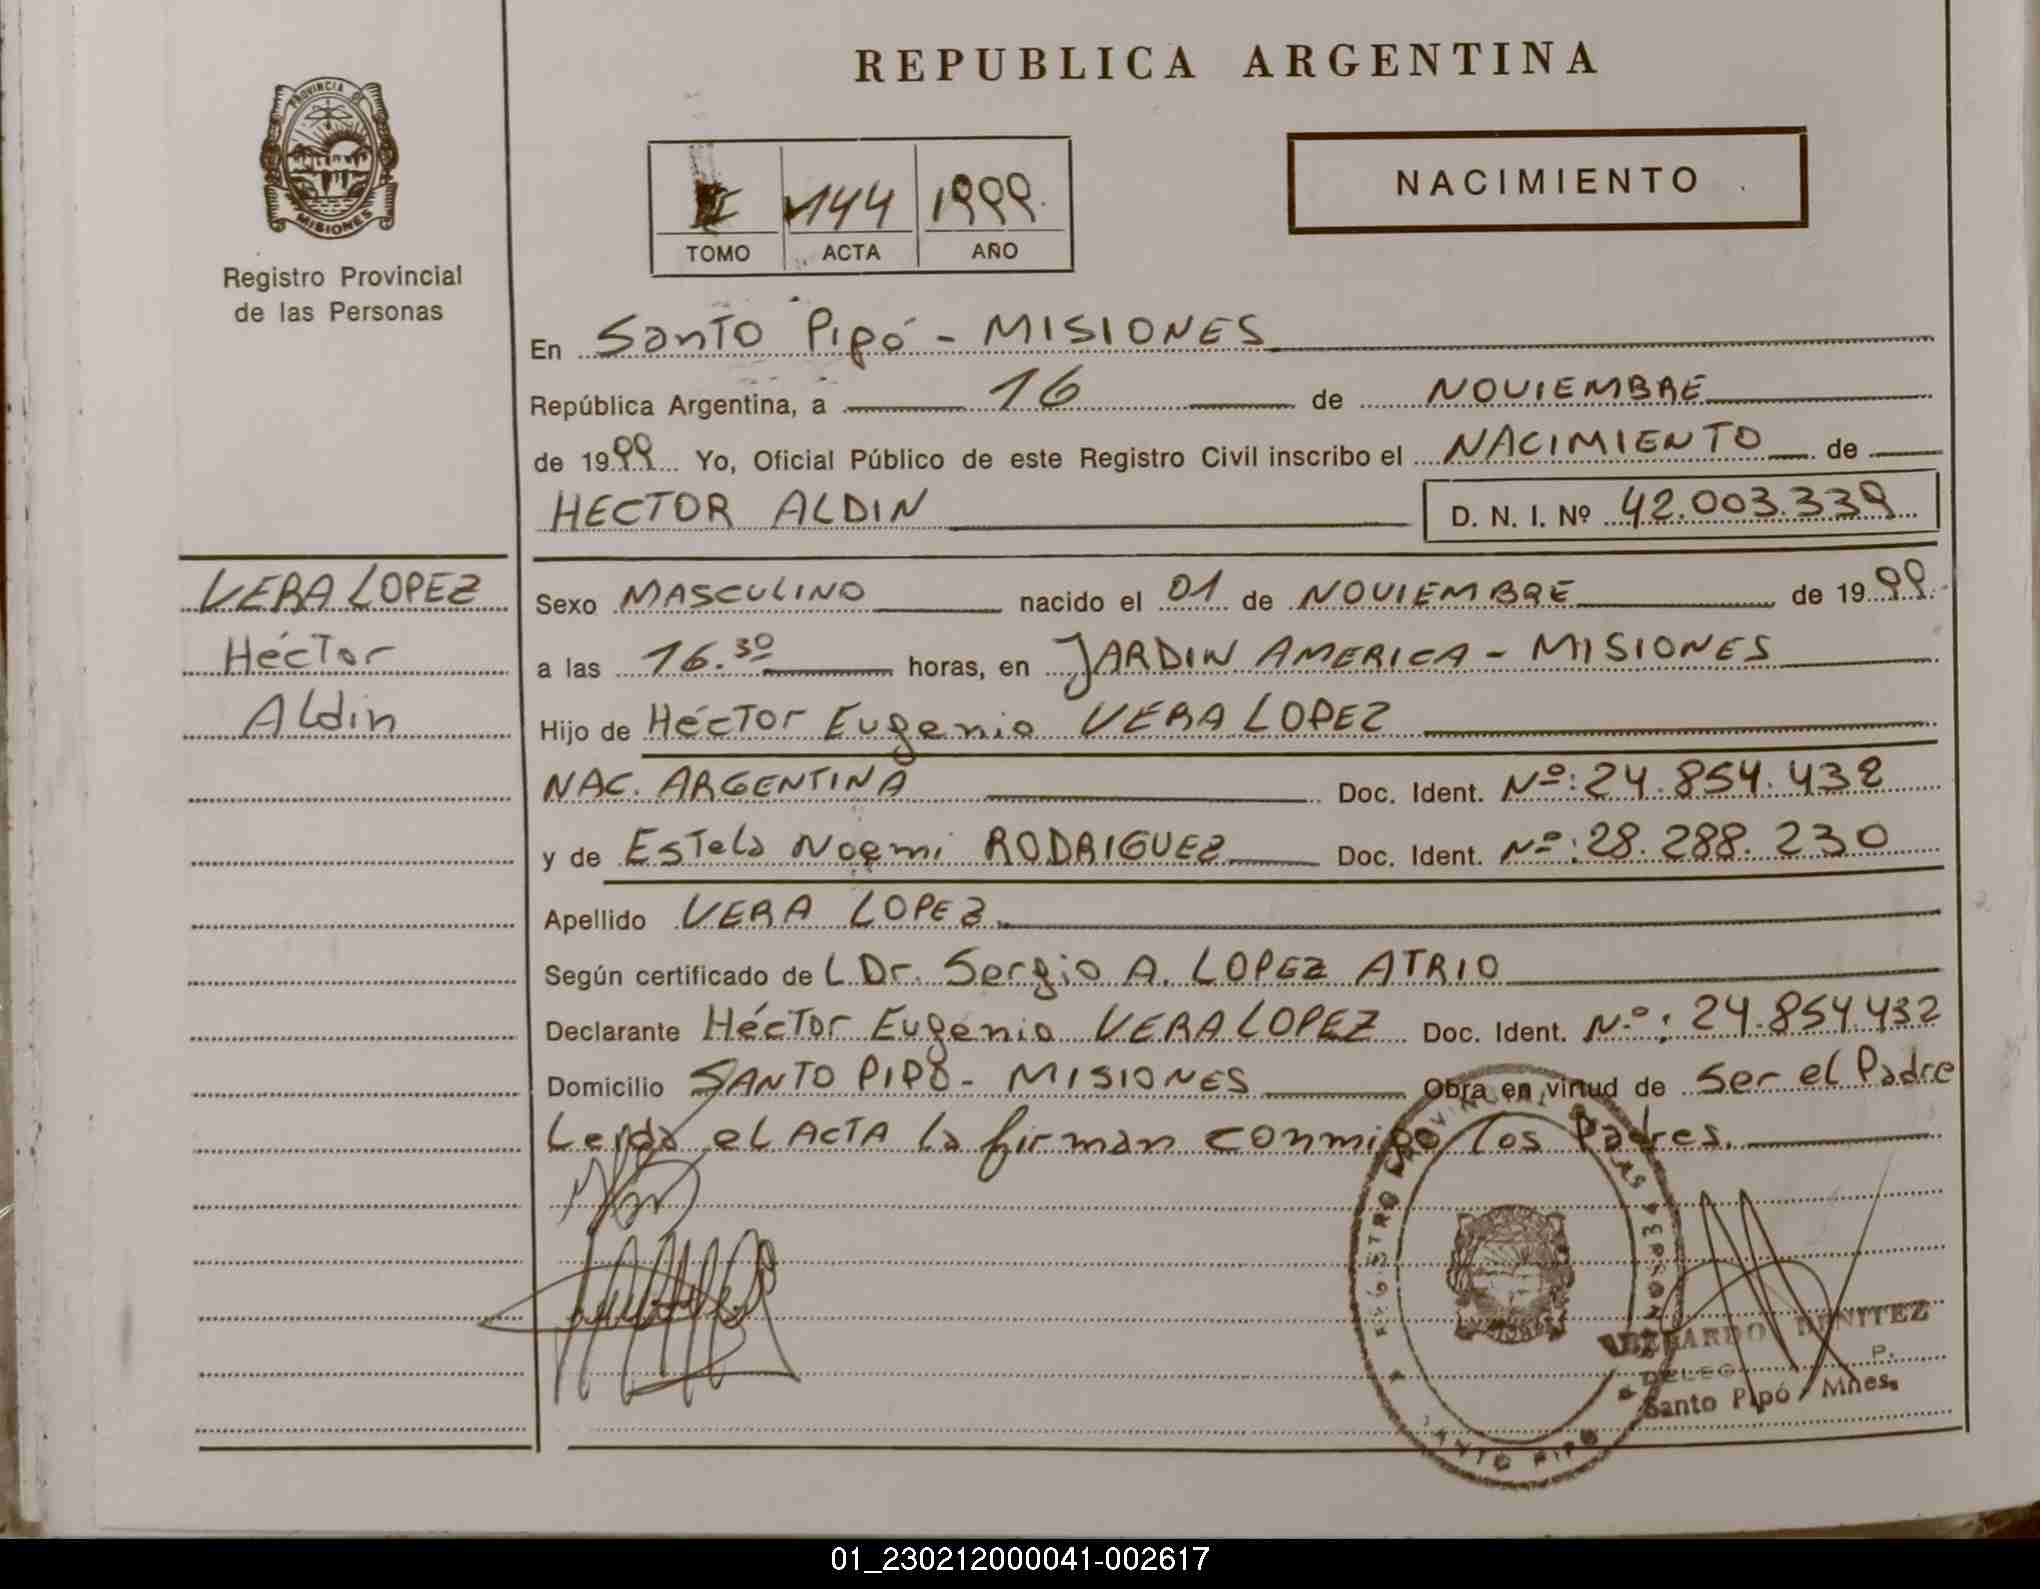 REPUBLICA ARGENTINA
PROVINCIA DE
MISIONES
Registro Provincial
de las Personas
144 1999
TOMO ACTA AÑO
NACIMIENTO
En Santo Pipó - MISIONES
República Argentina, a 16 de NOVIEMBRE
de 1999 Yo, Oficial Público de este Registro Civil inscribo el NACIMIENTO de
HECTOR ALDIN D. N. I. Nº 42.003.339
VERA LOPEZ
Héctor
Aldin
Sexo MASCULINO nacido el 01 de NOVIEMBRE de 1999.
a las 16.30 horas, en JARDIN AMERICA - MISIONES
Hijo de Héctor Eugenio VERA LOPEZ
NAC. ARGENTINA Doc. Ident. Nº: 24.854.432
y de Estela Noemi RODRIGUEZ Doc. Ident. Nº: 28.288.230
Apellido VERA LOPEZ.
Según certificado de L Dr. Sergio A. LOPEZ ATRIO
Declarante Héctor Eugenio VERA LOPEZ Doc. Ident. Nº: 24.854.432
Domicilio SANTO PIPÓ - MISIONES Obra en virtud de Ser el Padre
Leida el ACTA la firman conmigo los Padres.
REGISTRO PROVINCIAL DE LAS PERSONAS
SANTO PIPO
BENITEZ
Santo Pipó Mnes.
01_230212000041-002617